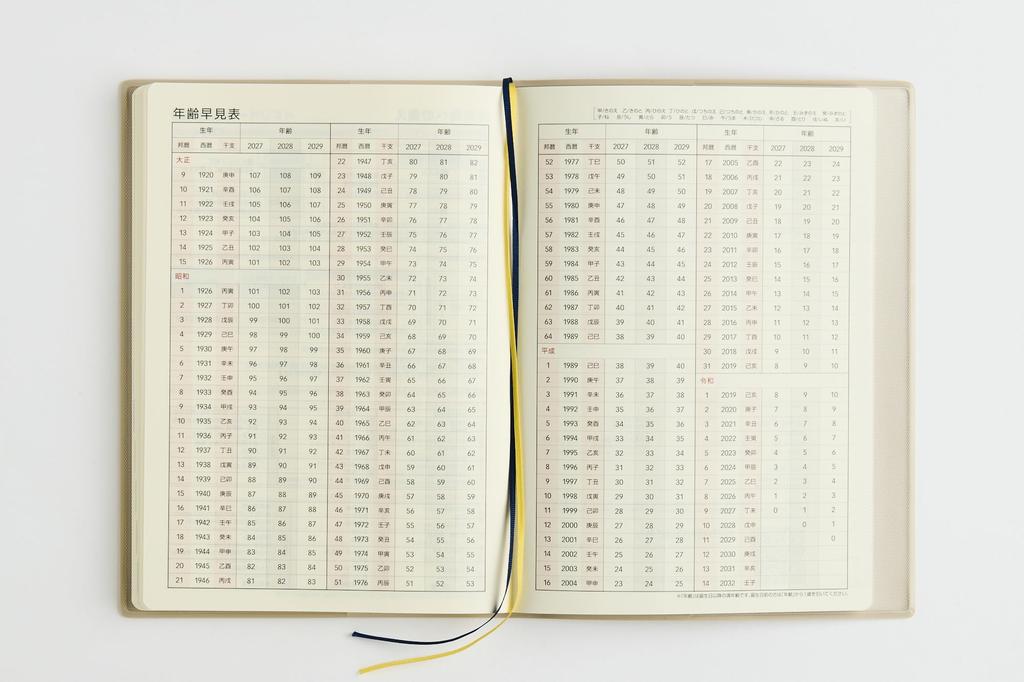 年齢早見表
生年 年齢
邦暦 西暦 干支 2027 2028 2029
大正
9 1920 庚申 107 108 109
10 1921 辛酉 106 107 108
11 1922 壬戌 105 106 107
12 1923 癸亥 104 105 106
13 1924 甲子 103 104 105
14 1925 乙丑 102 103 104
15 1926 丙寅 101 102 103
昭和
1 1926 丙寅 101 102 103
2 1927 丁卯 100 101 102
3 1928 戊辰 99 100 101
4 1929 己巳 98 99 100
5 1930 庚午 97 98 99
6 1931 辛未 96 97 98
7 1932 壬申 95 96 97
8 1933 癸酉 94 95 96
9 1934 甲戌 93 94 95
10 1935 乙亥 92 93 94
11 1936 丙子 91 92 93
12 1937 丁丑 90 91 92
13 1938 戊寅 89 90 91
14 1939 己卯 88 89 90
15 1940 庚辰 87 88 89
16 1941 辛巳 86 87 88
17 1942 壬午 85 86 87
18 1943 癸未 84 85 86
19 1944 甲申 83 84 85
20 1945 乙酉 82 83 84
21 1946 丙戌 81 82 83
生年 年齢
邦暦 西暦 干支 2027 2028 2029
22 1947 丁亥 80 81 82
23 1948 戊子 79 80 81
24 1949 己丑 78 79 80
25 1950 庚寅 77 78 79
26 1951 辛卯 76 77 78
27 1952 壬辰 75 76 77
28 1953 癸巳 74 75 76
29 1954 甲午 73 74 75
30 1955 乙未 72 73 74
31 1956 丙申 71 72 73
32 1957 丁酉 70 71 72
33 1958 戊戌 69 70 71
34 1959 己亥 68 69 70
35 1960 庚子 67 68 69
36 1961 辛丑 66 67 68
37 1962 壬寅 65 66 67
38 1963 癸卯 64 65 66
39 1964 甲辰 63 64 65
40 1965 乙巳 62 63 64
41 1966 丙午 61 62 63
42 1967 丁未 60 61 62
43 1968 戊申 59 60 61
44 1969 己酉 58 59 60
45 1970 庚戌 57 58 59
46 1971 辛亥 56 57 58
47 1972 壬子 55 56 57
48 1973 癸丑 54 55 56
49 1974 甲寅 53 54 55
50 1975 乙卯 52 53 54
51 1976 丙辰 51 52 53
甲/きのえ 乙/きのと 丙/ひのえ 丁/ひのと 戊/つちのえ 己/つちのと 庚/かのえ 辛/かのと 壬/みずのえ 癸/みずのと
子/ね 丑/うし 寅/とら 卯/う 辰/たつ 巳/み 午/うま 未/ひつじ 申/さる 酉/とり 戌/いぬ 亥/い
生年 年齢
邦暦 西暦 干支 2027 2028 2029
52 1977 丁巳 50 51 52
53 1978 戊午 49 50 51
54 1979 己未 48 49 50
55 1980 庚申 47 48 49
56 1981 辛酉 46 47 48
57 1982 壬戌 45 46 47
58 1983 癸亥 44 45 46
59 1984 甲子 43 44 45
60 1985 乙丑 42 43 44
61 1986 丙寅 41 42 43
62 1987 丁卯 40 41 42
63 1988 戊辰 39 40 41
64 1989 己巳 38 39 40
平成
1 1989 己巳 38 39 40
2 1990 庚午 37 38 39
3 1991 辛未 36 37 38
4 1992 壬申 35 36 37
5 1993 癸酉 34 35 36
6 1994 甲戌 33 34 35
7 1995 乙亥 32 33 34
8 1996 丙子 31 32 33
9 1997 丁丑 30 31 32
10 1998 戊寅 29 30 31
11 1999 己卯 28 29 30
12 2000 庚辰 27 28 29
13 2001 辛巳 26 27 28
14 2002 壬午 25 26 27
15 2003 癸未 24 25 26
16 2004 甲申 23 24 25
生年 年齢
邦暦 西暦 干支 2027 2028 2029
17 2005 乙酉 22 23 24
18 2006 丙戌 21 22 23
19 2007 丁亥 20 21 22
20 2008 戊子 19 20 21
21 2009 己丑 18 19 20
22 2010 庚寅 17 18 19
23 2011 辛卯 16 17 18
24 2012 壬辰 15 16 17
25 2013 癸巳 14 15 16
26 2014 甲午 13 14 15
27 2015 乙未 12 13 14
28 2016 丙申 11 12 13
29 2017 丁酉 10 11 12
30 2018 戊戌 9 10 11
31 2019 己亥 8 9 10
令和
1 2019 己亥 8 9 10
2 2020 庚子 7 8 9
3 2021 辛丑 6 7 8
4 2022 壬寅 5 6 7
5 2023 癸卯 4 5 6
6 2024 甲辰 3 4 5
7 2025 乙巳 2 3 4
8 2026 丙午 1 2 3
9 2027 丁未 0 1 2
10 2028 戊申 0 1
11 2029 己酉 0
12 2030 庚戌
13 2031 辛亥
14 2032 壬子
※「年齢」は誕生日以降の満年齢です。誕生日前の方は「年齢」から1歳を引いてください。